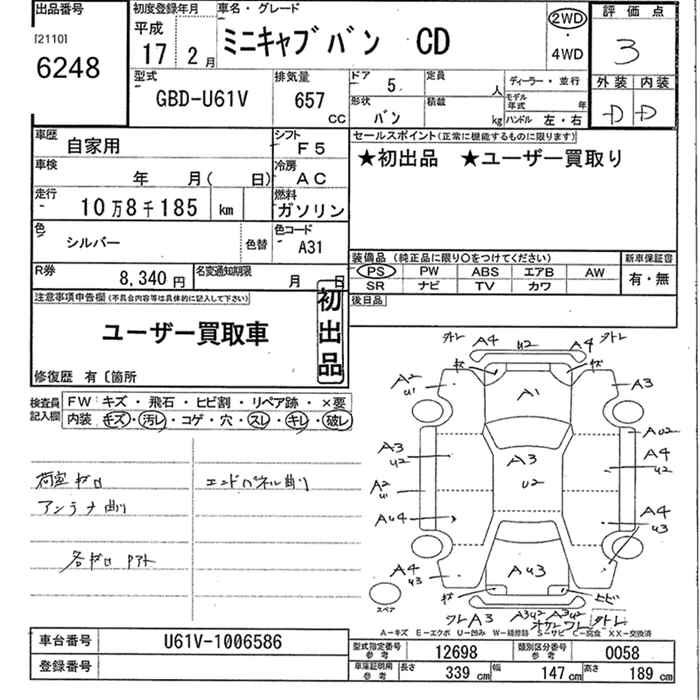 出品番号
[2110]
6248
初度登録年月
平成
17 2月
車名・グレード
ミニキャブバン CD
2WD
・
4WD
評価点
3
外装 内装
D D
型式
GBD-U61V
排気量
657
CC
ドア
5
定員
人
形状
バン
積載
kg
ディーラー・並行
モデル年式 年
ハンドル 左・右
車歴
自家用
シフト
F5
車検
年 月( 日)
冷房
AC
走行
10万8千185 km
燃料
ガソリン
色
シルバー
色替
色コード
A31
R券
8,340円
名変通知期限
月 日
セールスポイント(正常に機能するものに限ります)
★初出品 ★ユーザー買取り
装備品(純正品に限り○をつけてください)
PS PW ABS エアB AW
SR ナビ TV カワ
新車保証書
有・無
後日品
注意事項申告欄(不具合内容等は具体的に記入して下さい)
ユーザー買取車
初出品
修復歴 有〔箇所
検査員記入欄
FW:キズ・飛石・ヒビ割・リペア跡・×要
内装:キズ・汚レ・コゲ・穴・スレ・キレ・破レ
エンドパネル曲り
アンテナ曲り
外レ A4 U2 A4 外レ
キズ キズ
A2 U1
A1
A3
A3 U2
A3
U2
AU2
A4 U2
A2 U1
AU4
A4 U3
A4 U3
AU3
キズ
ヒビ
スペア
ワレ A3 A3U2 A3U2
ワレ
A-キズ E-エクボ U-凹み W-補修跡 S-サビ C-腐食 XX-交換済
車台番号
U61V-1006586
登録番号
型式指定番号 参考
12698
類別区分番号 参考
0058
車庫証明用 参考
長さ 339 cm 幅 147 cm 高さ 189 cm